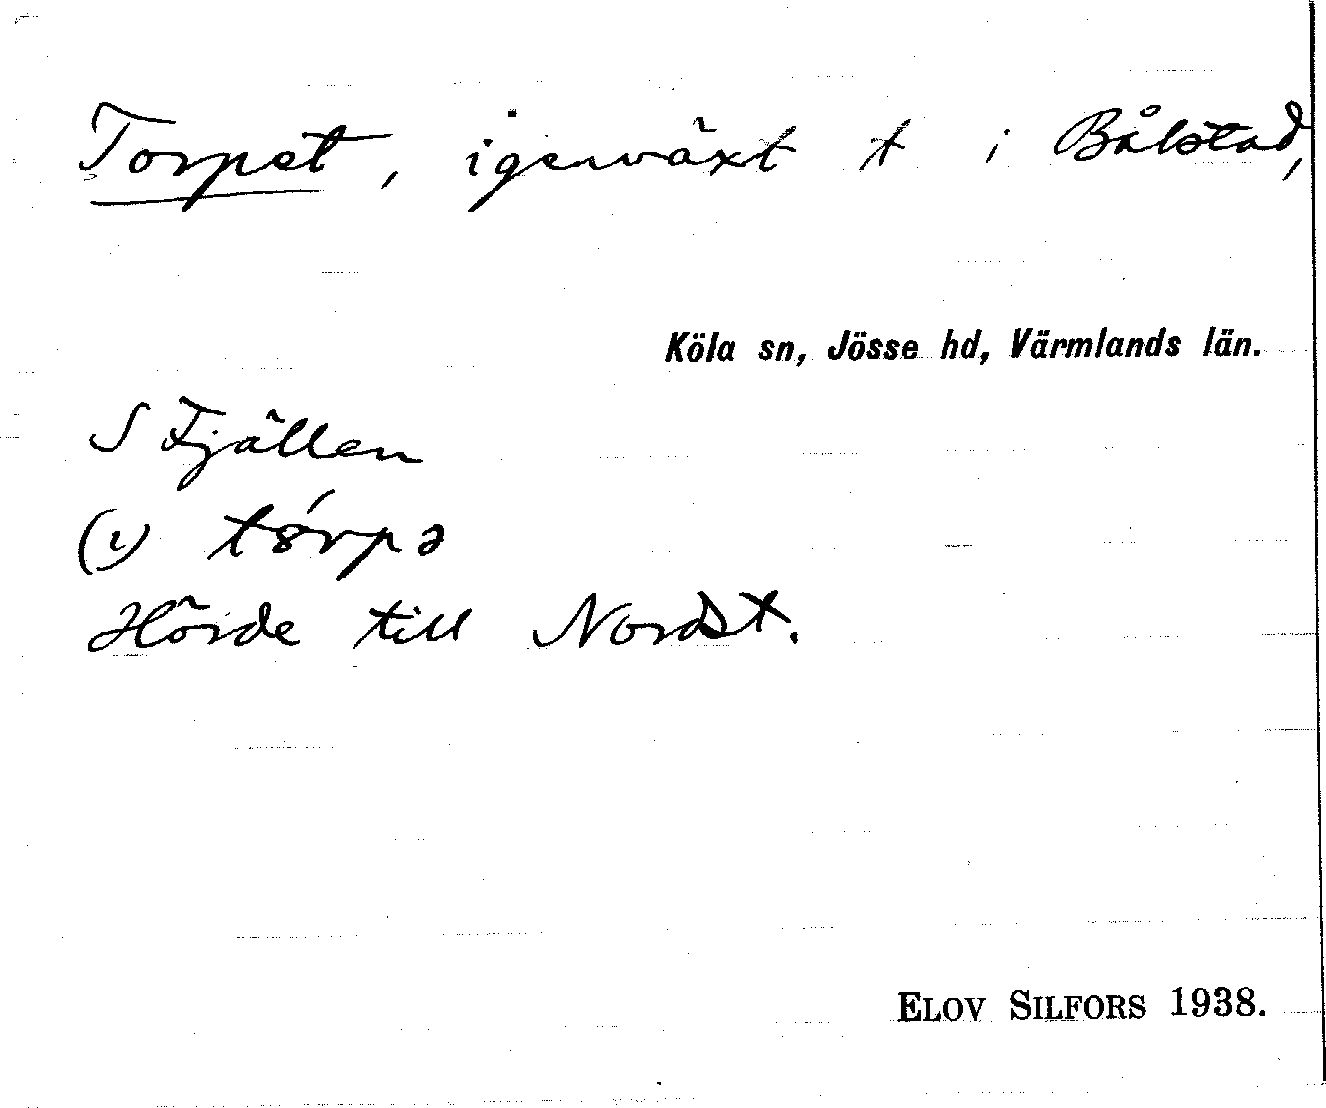 Torpet, igenväxt t i Bålstad,
Köla sn, Jösse hd, Värmlands län.
S Fjällen
(i) tórpə
Hörde till Nordst.
ELOV SILFORS 1938.